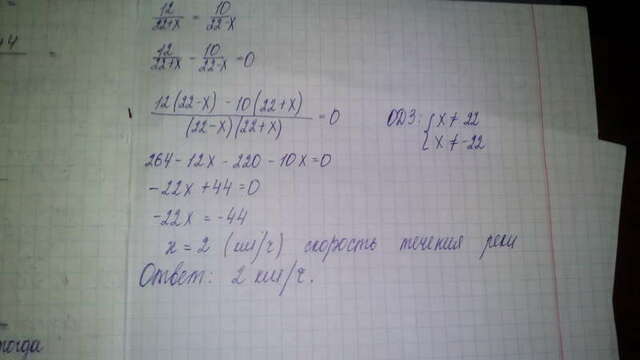 12/(22+x) = 10/(22-x)
12/(22+x) - 10/(22-x) = 0
(12(22-x) - 10(22+x))/((22-x)(22+x)) = 0 ОДЗ: { x ≠ 22
x ≠ -22
264 - 12x - 220 - 10x = 0
-22x + 44 = 0
-22x = -44
x = 2 (км/ч) скорость течения реки
Ответ: 2 км/ч.
тогда